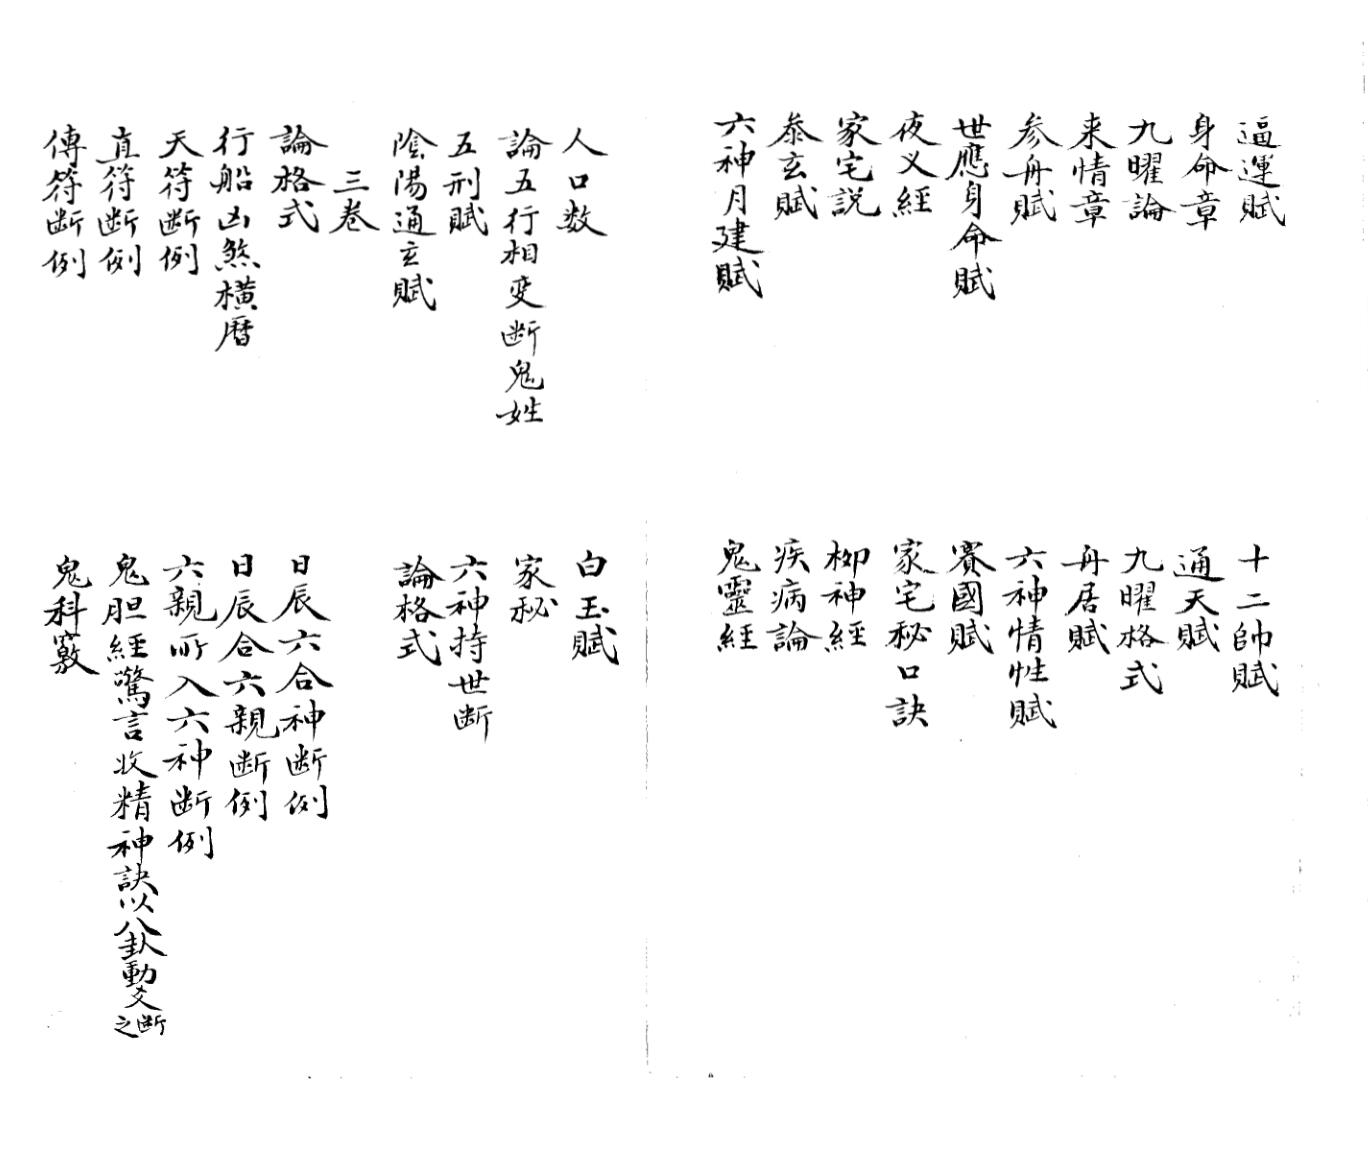 逼運賦
身命章
九曜論
来情章
参舟賦
世應身命賦
夜叉經
家宅説
泰玄賦
六神月建賦
十二帥賦
通天賦
九曜格式
舟居賦
六神情性賦
賽國賦
家宅秘口訣
柳神經
疾病論
鬼靈経
人口数
論五行相变断鬼姓
五刑賦
陰陽通玄賦
三卷
論格式
行船凶煞横暦
天符断例
直符断例
傳符断例
白玉賦
家秘
六神持世断
論格式
日辰六合神断例
日辰合六親断例
六親所入六神断例
鬼胆経驚言收精神訣以八卦動爻断之
鬼科竅